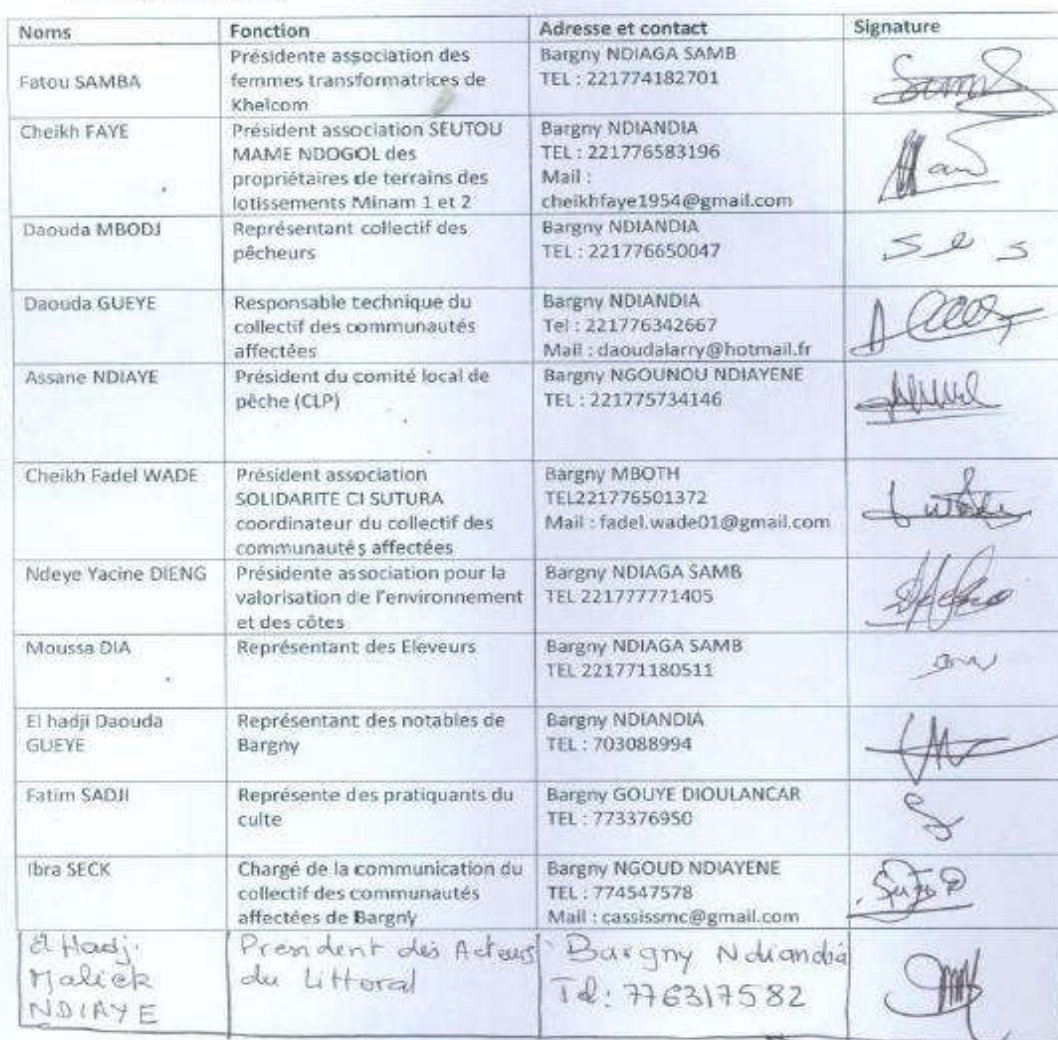 Noms Fonction Adresse et contact Signature
Fatou SAMBA
Présidente association des
femmes transformatrices de
Khelcom
Bargny NDIAGA SAMB
TEL : 221774182701
Cheikh FAYE
Président association SEUTOU
MAME NDOGOL des
propriétaires de terrains des
lotissements Minam 1 et 2
Bargny NDIANDIA
TEL : 221776583196
Mail :
cheikhfaye1954@gmail.com
Daouda MBODJ
Représentant collectif des
pêcheurs
Bargny NDIANDIA
TEL : 221776650047
Daouda GUEYE
Responsable technique du
collectif des communautés
affectées
Bargny NDIANDIA
Tel : 221776342667
Mail : daoudalarry@hotmail.fr
Assane NDIAYE
Président du comité local de
pêche (CLP)
Bargny NGOUNOU NDIAYENE
TEL : 221775734146
Cheikh Fadel WADE
Président association
SOLIDARITE CI SUTURA
coordinateur du collectif des
communautés affectées
Bargny MBOTH
TEL221776501372
Mail : fadel.wade01@gmail.com
Ndeye Yacine DIENG
Présidente association pour la
valorisation de l'environnement
et des côtes
Bargny NDIAGA SAMB
TEL 221777771405
Moussa DIA
Représentant des Eleveurs
Bargny NDIAGA SAMB
TEL 221771180511
El hadji Daouda
GUEYE
Représentant des notables de
Bargny
Bargny NDIANDIA
TEL : 703088994
Fatim SADJI
Représente des pratiquants du
culte
Bargny GOUYE DIOULANCAR
TEL : 773376950
Ibra SECK
Chargé de la communication du
collectif des communautés
affectées de Bargny
Bargny NGOUD NDIAYENE
TEL : 774547578
Mail : cassissmc@gmail.com
El Hadj.
Malick
NDIAYE
President des Acteurs
du Littoral
Bargny Ndiandia
Tel: 776317582